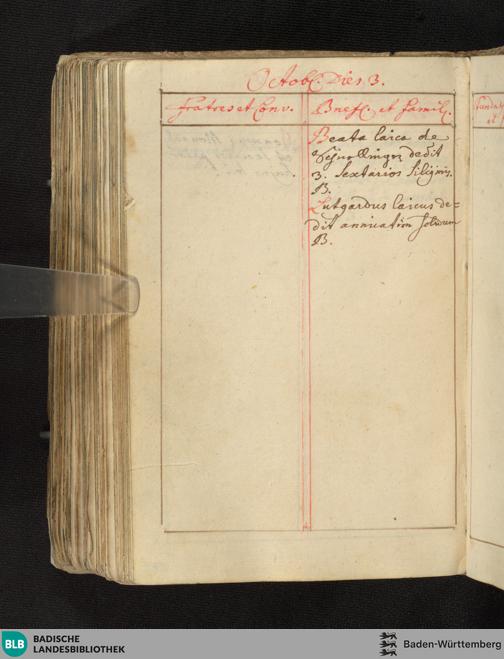 Octob. Dies 3.
Fratres et Conv.
Benefc. et Famil.
Beata laica de
dedit
3. sextarios siliginis.
B.
Lutgardus laicus de=
dit annuatim solidum
B.
BLB
BADISCHE
LANDESBIBLIOTHEK
Baden-Württemberg